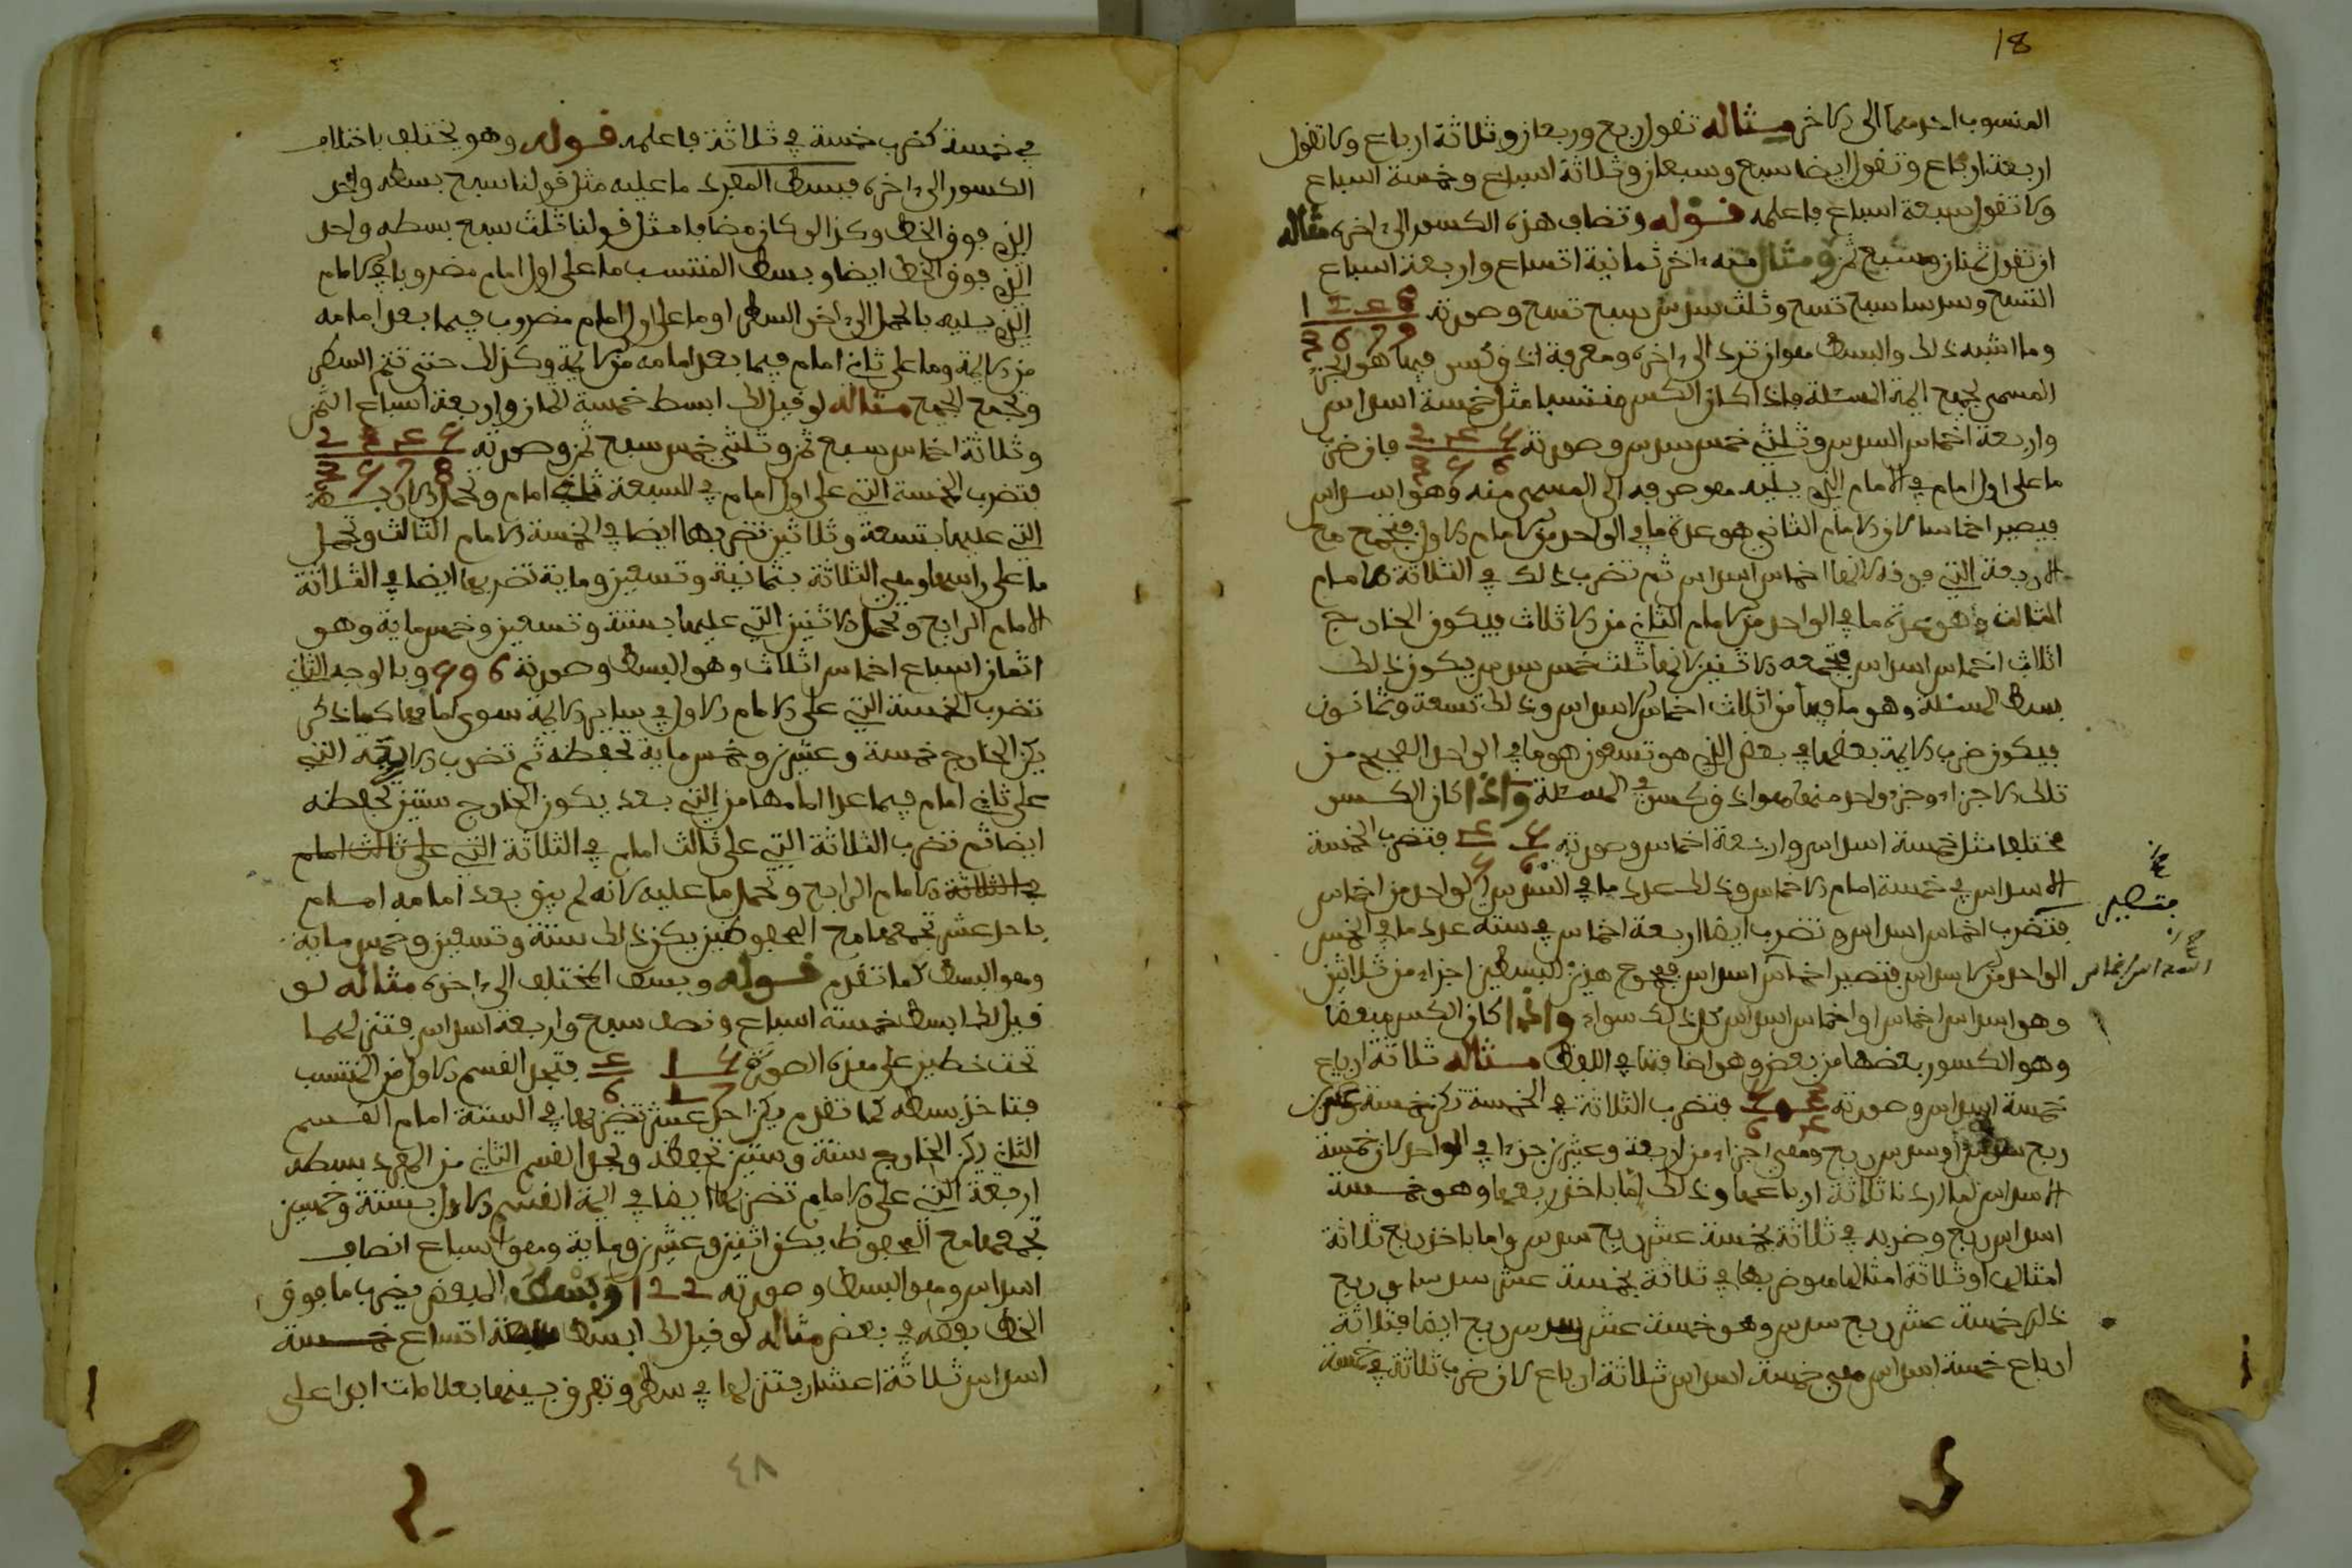 18
المنسوب احدهما الى الاخر مثاله تقول ربع وربعان وثلاثة ارباع ولا تقول
اربعة ارباع وتقول ايضا سبع وسبعان وثلاثة اسباع وخمسة اسباع
ولا تقول سبعة اسباع فاعلمه قوله وتضاف هذه الكسور الى اخره مثاله
ان تقول ثمنان وسبع ثمن ومثال منه اخر ثمانية اتساع واربعة اسباع
التسع وسدسا سبع تسع وثلث سدس سبع تسع وصورته
وما اشبه ذلك والبسط هو ان ترد الى اخره ومعرفة اذ
المسمى بجمع ايمة المسئلة فاذا كان الكسر منتسبا مثل خمسة اسداس
واربعة اخماس السدس وثلثي خمس سدس وصورته فان ضرب
ما على اول امام في الامام الذي يليه هو صرفه الى المسمى منه وهو اسداس
فيصير اخماسا لان الامام الثاني هو عدة ما في الواحد من الامام الاول فيجمع مع
الاربعة التي فوقه لانها اخماس اسداس ثم تضرب ذلك في الثلاثة الامام
الثالث وهو عدة ما في الواحد من الامام الثاني من الاثلاث فيكون الخارج
اثلاث اخماس اسداس فتجمعه الاثنين لانها ثلث خمس سدس يكون ذلك
بسط المسئلة وهو ما فيها من اثلاث اخماس الاسداس وذلك تسعة وثمانون
فيكون ضرب الايمة بعضها في بعض الذي هو تسعون هو ما في الواحد الصحيح من
تلك الاجزاء وجزء واحد منها هو اذ في المسئلة واذا كان الكسر
مختلفا مثل خمسة اسداس واربعة اخماس وصورته فتضرب الخمسة
الاسداس في خمسة امام الاخماس وذلك عدد ما في السدس الواحد من اخماس
فتضرب اخماس اسداس وتضرب ايضا اربعة اخماس في ستة عدد ما في الخمس
الواحد من الاسداس فتصير اخماس اسداس فمجموع هذين البسطين اجزاء من ثلاثين
وهو اسداس اخماس او اخماس اسداس كل ذلك سواء واذا كان الكسر مبعضا
وهو الكسور بعضها من بعض وهو اضافتها في اللفظ مثاله ثلاثة ارباع
خمسة اسداس وصورته فتضرب الثلاثة في الخمسة تكن خمسة عشر
ربع سدس او سدس ربع وهي اجزاء من اربعة وعشرين جزءا في الواحد لان خمسة
الاسداس لما اردنا ثلاثة ارباعها وذلك اما باخذ ربعها وهو خمسة
اسداس ربع وضربه في ثلاثة بخمسة عشر ربع سدس واما باخذ ربع ثلاثة
امثالها او ثلاثة امثالها هو ضربها في ثلاثة بخمسة عشر سدسا وربع
ذلك خمسة عشر ربع سدس وهو خمسة عشر سدس ربع ايضا فثلاثة
ارباع خمسة اسداس هي خمسة اسداس ثلاثة ارباع لان ضرب ثلاثة في خمسة
في خمسة كضرب خمسة في ثلاثة فاعلمه قوله وهو يختلف باختلاف
الكسور الى اخره فبسط المفرد ما عليه مثل قولنا سبع بسطه واحد
الذي فوق الخط وكذا لو كان مضافا مثل قولنا ثلث سبع بسطه واحد
الذي فوق الخط ايضا وبسط المنتسب ما على اول امام مضروبا في الامام
الذي يليه بالحمل الى اخر السطر او ما على اول امام مضروب فيما بعد امامه
من الايمة وما على ثاني امام فيما بعد امامه من الايمة وكذلك حتى تتم السطر
وتجمع الجميع مثاله لو قيل لك ابسط خمسة اثمان واربعة اسباع الثمن
وثلاثة اخماس سبع ثمن وثلثي خمس سبع ثمن وصورته
فتضرب الخمسة التي على اول امام في السبعة ثاني امام وتحمل الاربعة
التي عليها بتسعة وثلاثين تضربها ايضا في الخمسة الامام الثالث وتحمل
ما على راسها وهي الثلاثة بثمانية وتسعين وماية تضربها ايضا في الثلاثة
الامام الرابع وتحمل الاثنين التي عليها بستة وتسعين وخمسماية وهو
اثمان اسباع اخماس اثلاث وهو البسط وصورته 596 وبالوجه الثاني
تضرب الخمسة التي على الامام الاول في ساير الايمة سوى امامها كما ذكر
يكن الخارج خمسة وعشرين وخمسماية تحفظه ثم تضرب الاربعة التي
على ثاني امام فيما عدا امامها من التي بعد يكون الخارج ستين تحفظه
ايضا ثم تضرب الثلاثة التي على ثالث امام في الثلاثة التي على ثالث امام
في الثلاثة الامام الرابع وتحمل ما عليه لانه لم يبق بعد امامه امام
باحد عشر تجمعها مع المحفوظين يكن ذلك ستة وتسعين وخمسماية
وهو البسط كما تقدم قوله وبسط المختلف الى اخره مثاله لو
قيل لك ابسط خمسة اسباع ونصف سبع واربعة اسداس فتنزلهما
تحت خطين على هذه الصورة فتجعل القسم الاول من المنتسب
فتاخذ بسطه كما تقدم يكن احد عشر تضربها في الستة امام القسم
الثاني يكن الخارج ستة وستين تحفظه وتجعل القسم الثاني من المفرد بسطه
اربعة التي على الامام تضربها ايضا في ايمة القسم الاول بستة وخمسين
تجمعها مع المحفوظ يكن اثنين وعشرين وماية وهو اسباع انصاف
اسداس وهو البسط وصورته 122 وبسط المبعض بضرب ما فوق
الخط بعضه في بعض مثاله لو قيل لك ابسط اتساع خمسة
اسداس ثلاثة اعشار فتنزلها في سطر وتفرق بينها بعلامات ابدا على
٤٨